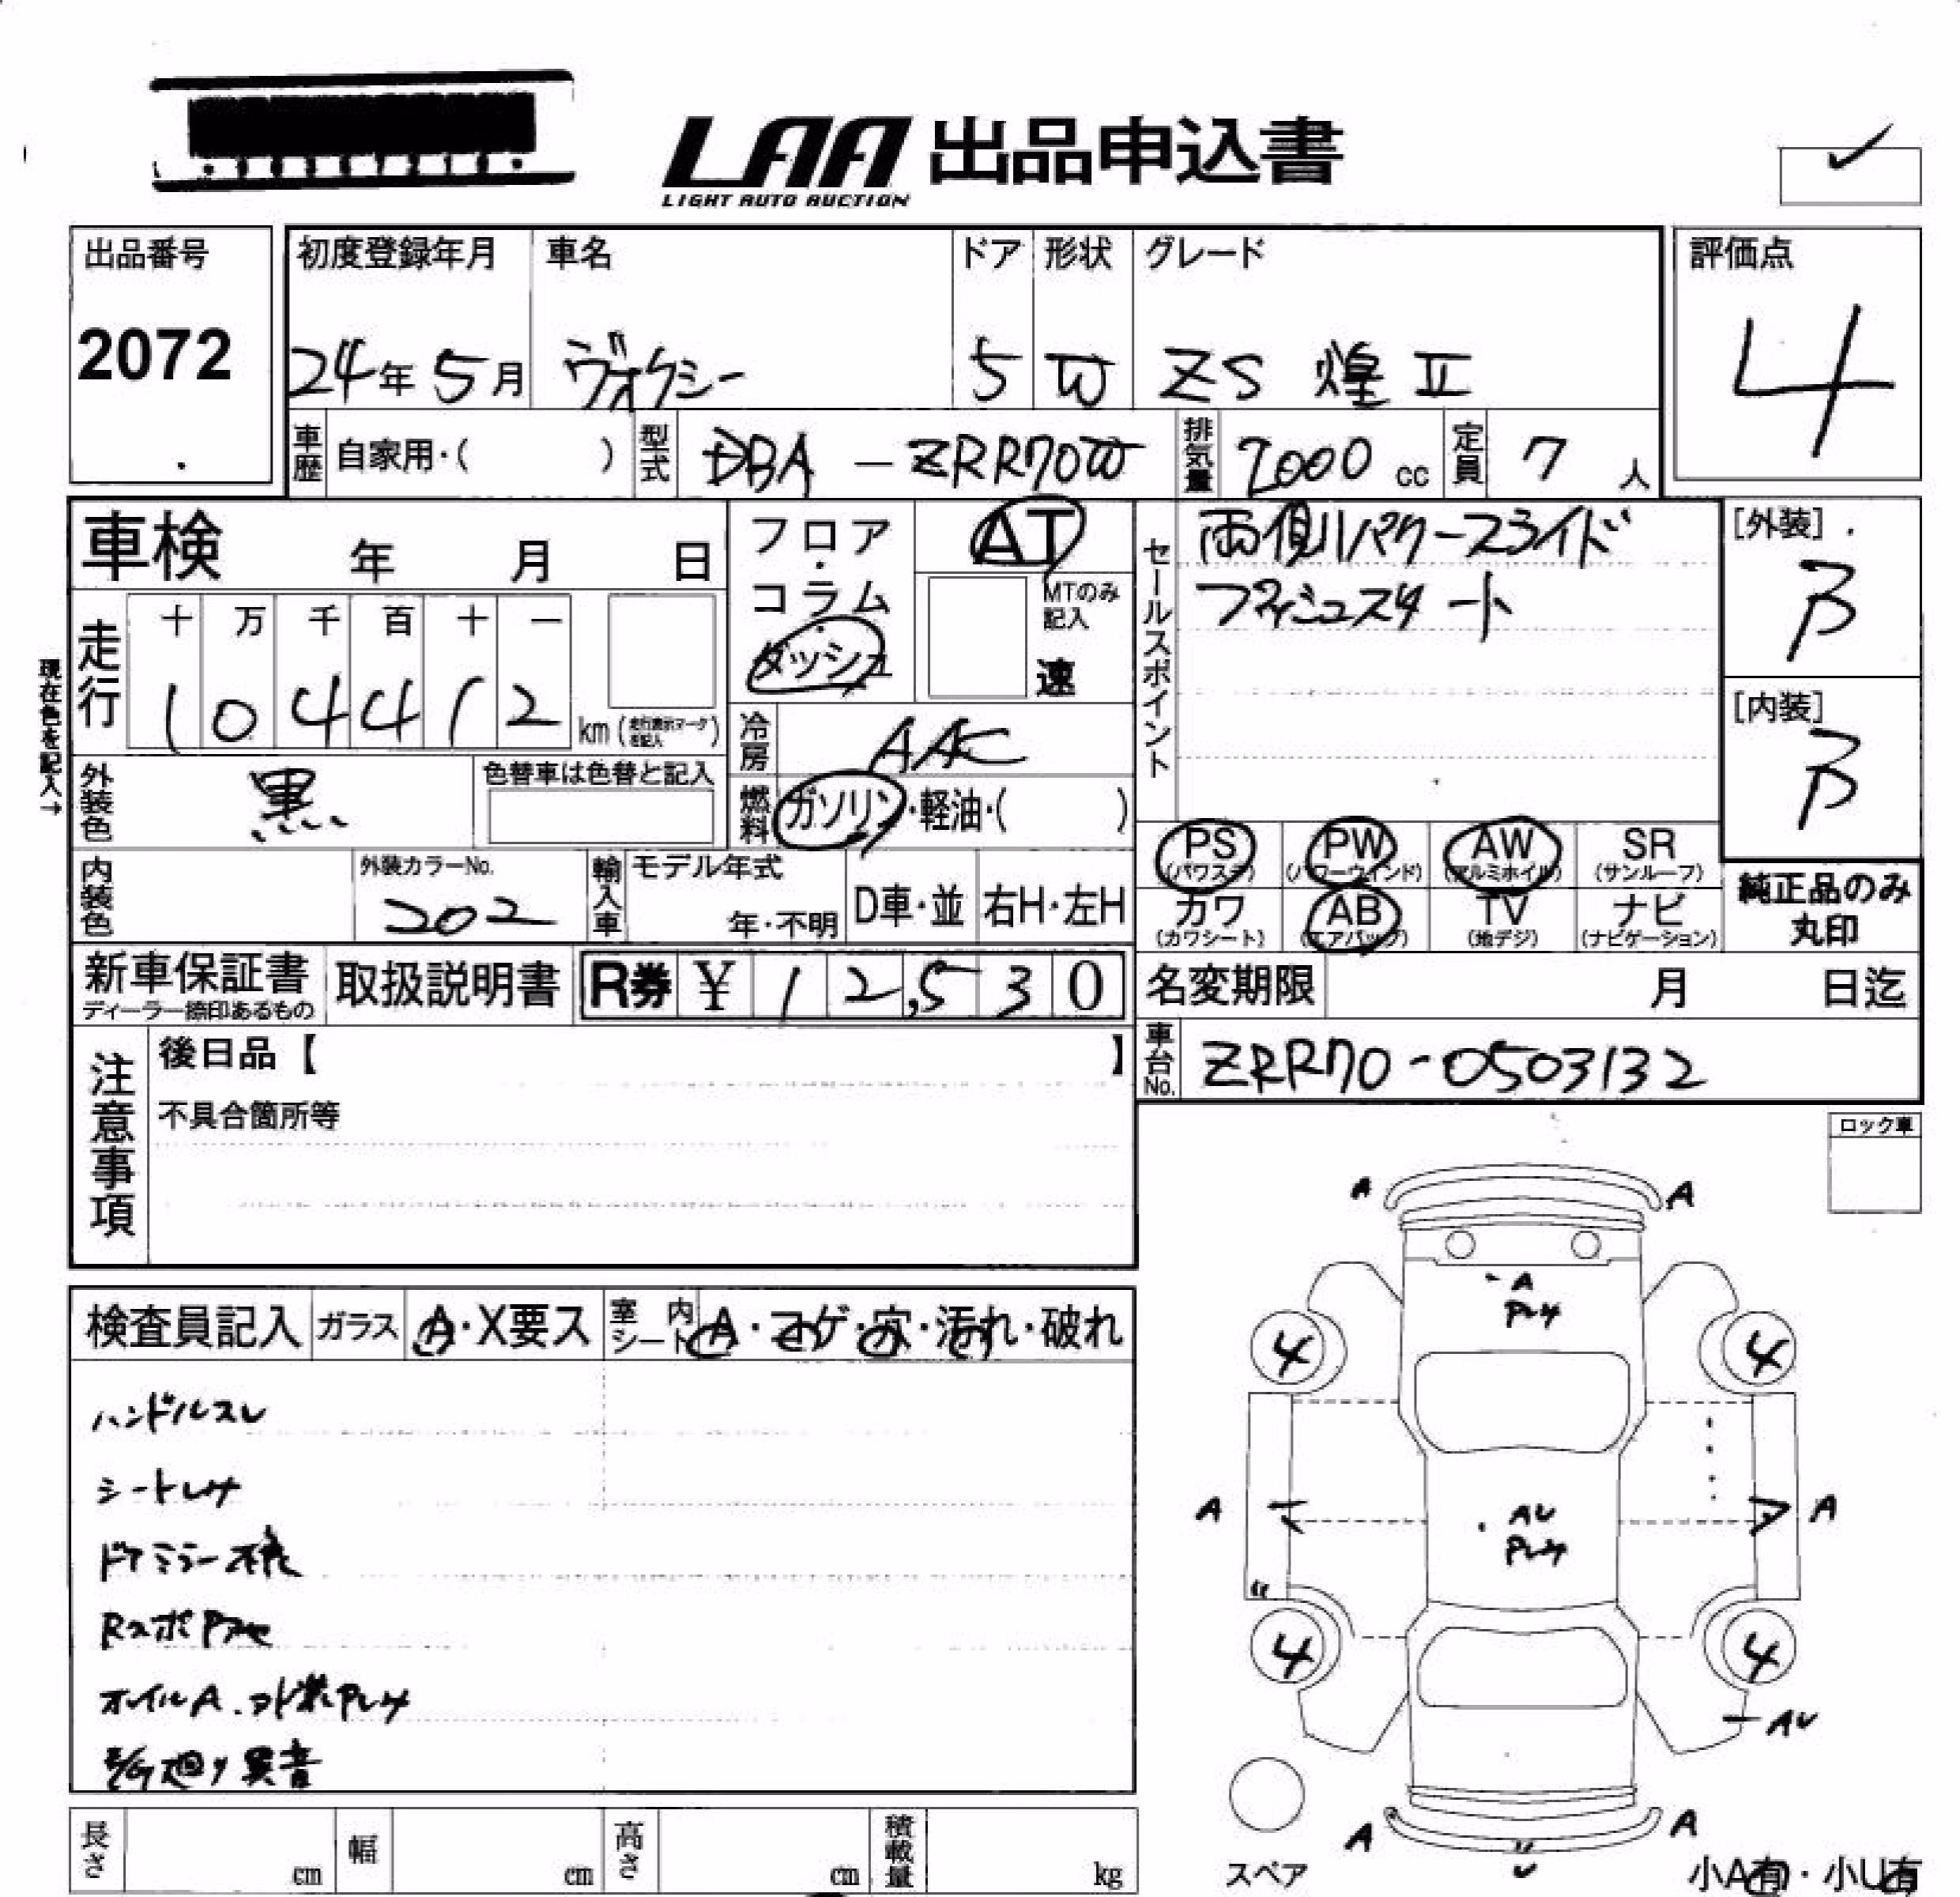 LAA 出品申込書
LIGHT AUTO AUCTION
出品番号
2072
初度登録年月 車名 ドア 形状 グレード
24年5月 ヴォクシー 5 W ZS 煌 Ⅱ
評価点
4
車歴 自家用・( ) 型式 DBA-ZRR70W 排気量 2000 cc 定員 7 人
車検 年 月 日
フロア・コラム・ダッシュ
AT
MTのみ記入
速
セールスポイント
両側パワースライド
プッシュスタート
[外装]
B
[内装]
B
現在色を記入→
走行 十 万 千 百 十 一
104412 km (走行表示マークを記入)
冷房 AAC
外装色 黒 色替車は色替と記入
燃料 ガソリン・軽油・( )
PS (パワステ) PW (パワーウインド) AW (アルミホイル) SR (サンルーフ)
カワ (カワシート) AB (エアバッグ) TV (地デジ) ナビ (ナビゲーション)
純正品のみ丸印
内装色 外装カラーNo. 202 輸入車 モデル年式 年・不明 D車・並 右H・左H
新車保証書 ディーラー捺印あるもの 取扱説明書 R券 ¥ 12,530
名変期限 月 日迄
車台No. ZRR70-0503132
注意事項
後日品【 】
不具合箇所等
ロック車
検査員記入 ガラス A・X要ス 室内シート A・コゲ・穴・汚れ・破れ
ハンドルスレ
シートレサ
ドアミラー
オイルA.外装
廻り異音
A A
A
4 4
A AU A
4 4
AU
A A
スペア
小A有・小U有
長さ cm 幅 cm 高さ cm 積載量 kg